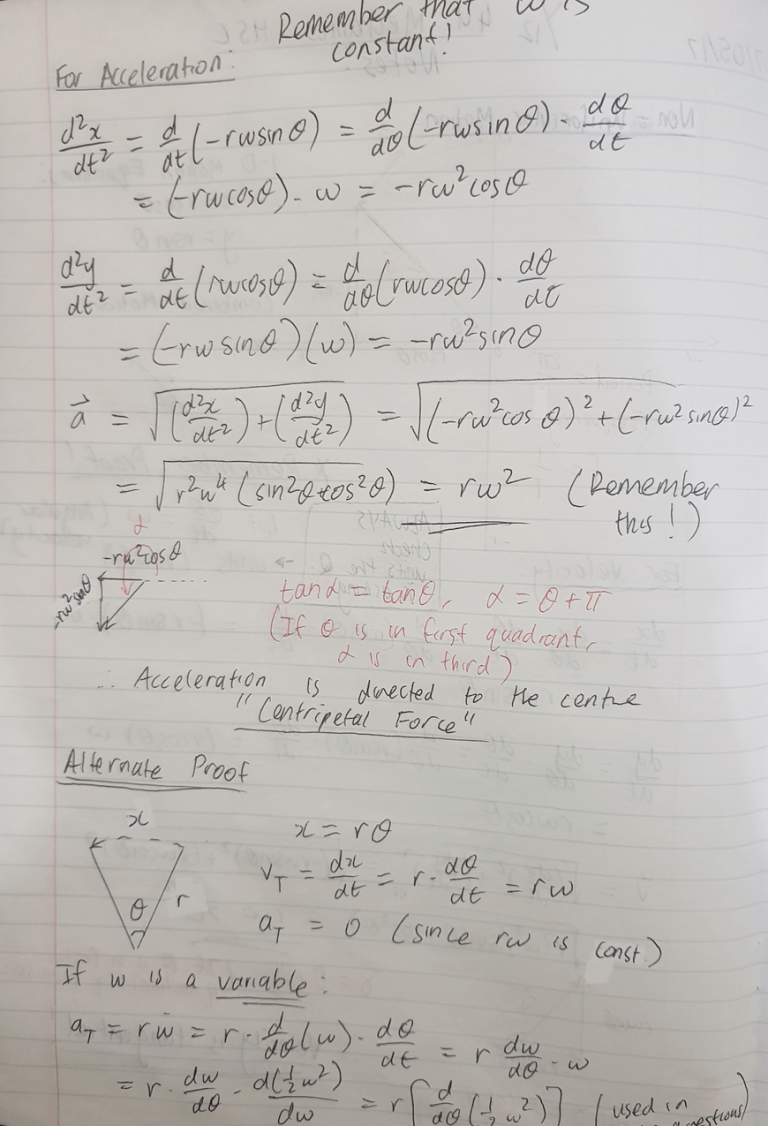 Remember that ω is
constant!
For Acceleration:
d²x/dt² = d/dt(-rωsinθ) = d/dθ(-rωsinθ) · dθ/dt
= (-rωcosθ) · ω = -rω²cosθ
d²y/dt² = d/dt(rωcosθ) = d/dθ(rωcosθ) · dθ/dt
= (-rωsinθ)(ω) = -rω²sinθ
a⃗ = √((d²x/dt²)+(d²y/dt²)) = √((-rω²cosθ)²+(-rω²sinθ)²
= √(r²ω⁴(sin²θ+cos²θ) = rω² (Remember
this!)
α
-rω²cosθ
-rω²sinθ
tanα = tanθ, α = θ+π
(If θ is in first quadrant,
α is in third)
∴ Acceleration is directed to the centre
"Centripetal Force"
Alternate Proof
x
θ r
x = rθ
v_T = dx/dt = r · dθ/dt = rω
a_T = 0 (since rω is const.)
If ω is a variable:
a_T = rω̇ = r · d/dθ(ω) · dθ/dt = r dω/dθ · ω
= r · dω/dθ · d(½ω²)/dω = r[d/dθ(½ω²)] (used in
questions)